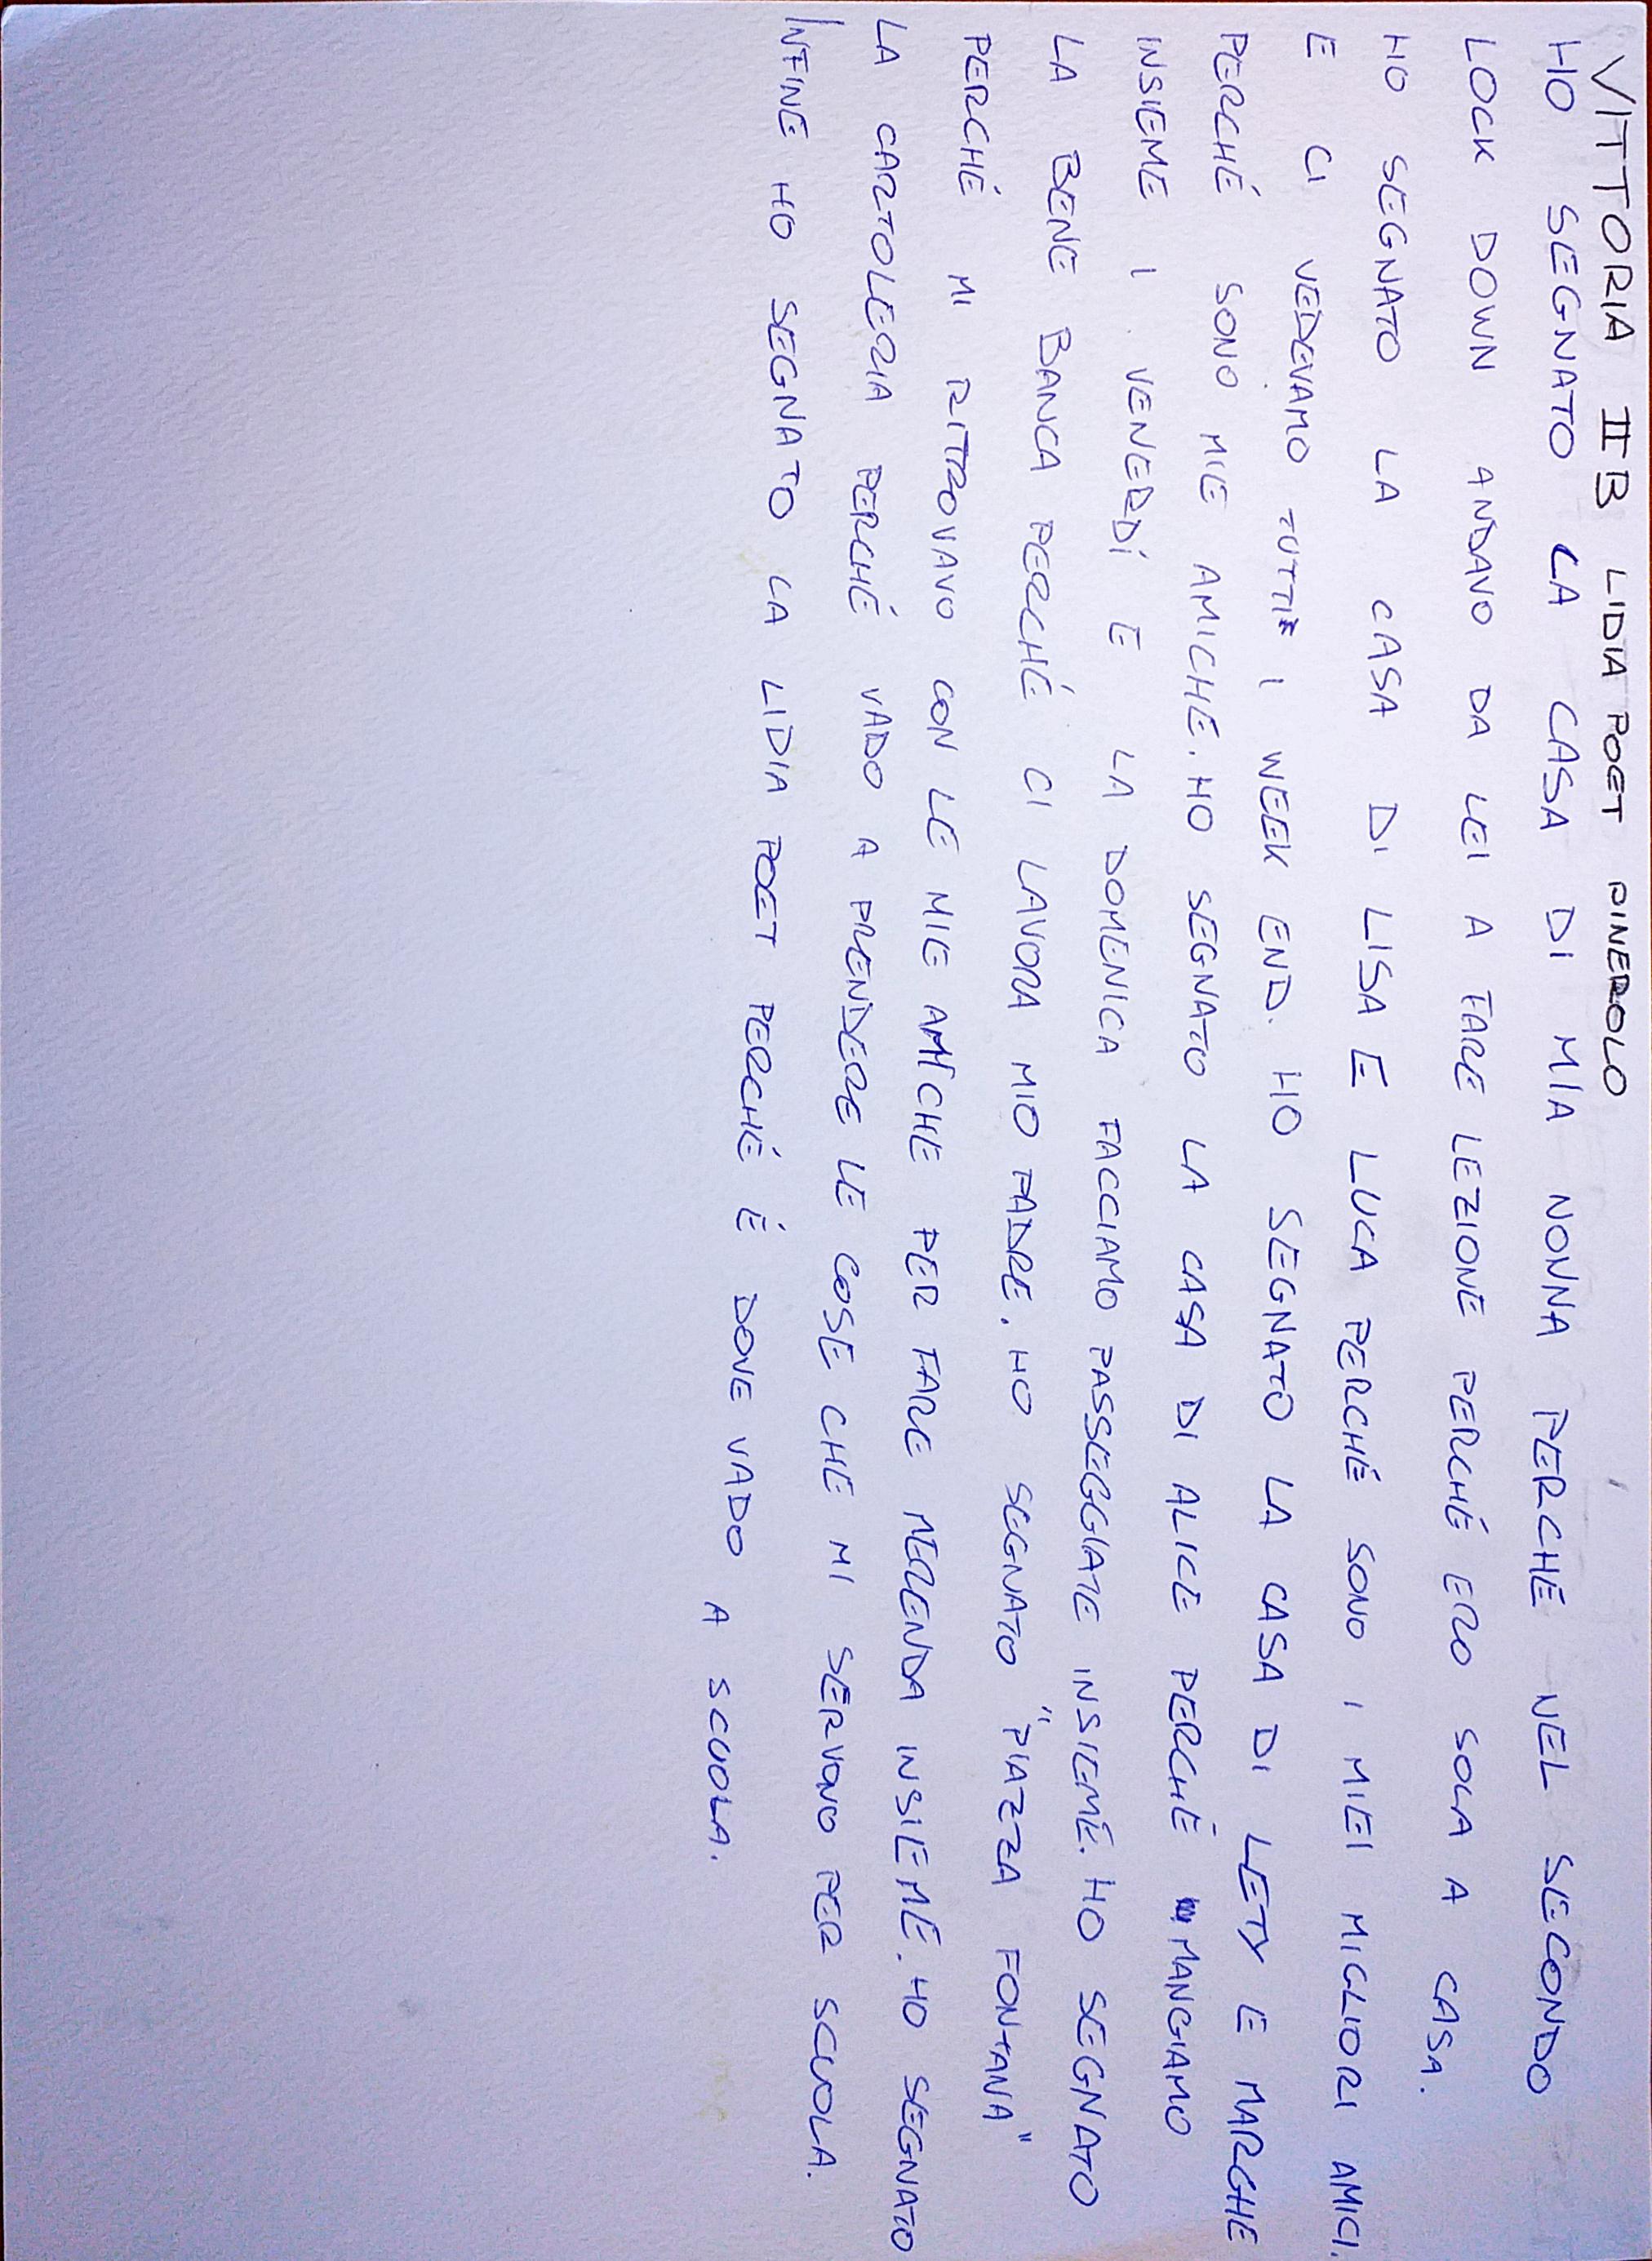 VITTORIA IIB LIDIA POET PINEROLO
HO SEGNATO LA CASA DI MIA NONNA PERCHÉ NEL SECONDO
LOCK DOWN ANDAVO DA LEI A FARE LEZIONE PERCHÉ ERO SOLA A CASA.
HO SEGNATO LA CASA DI LISA E LUCA PERCHÉ SONO I MIEI MIGLIORI AMICI.
E CI VEDEVAMO TUTTI I WEEK END. HO SEGNATO LA CASA DI LETY E MARGHE
PERCHÉ SONO MIE AMICHE. HO SEGNATO LA CASA DI ALICE PERCHÉ MANGIAMO
INSIEME I VENERDÍ E LA DOMENICA FACCIAMO PASSEGGIATE INSIEME. HO SEGNATO
LA BENE BANCA PERCHÉ CI LAVORA MIO PADRE. HO SEGNATO "PIAZZA FONTANA"
PERCHÉ MI RITROVAVO CON LE MIE AMICHE PER FARE MERENDA INSIEME. HO SEGNATO
LA CARTOLERIA PERCHÉ VADO A PRENDERE LE COSE CHE MI SERVONO PER SCUOLA.
INFINE HO SEGNATO LA LIDIA POET PERCHÉ É DOVE VADO A SCUOLA.